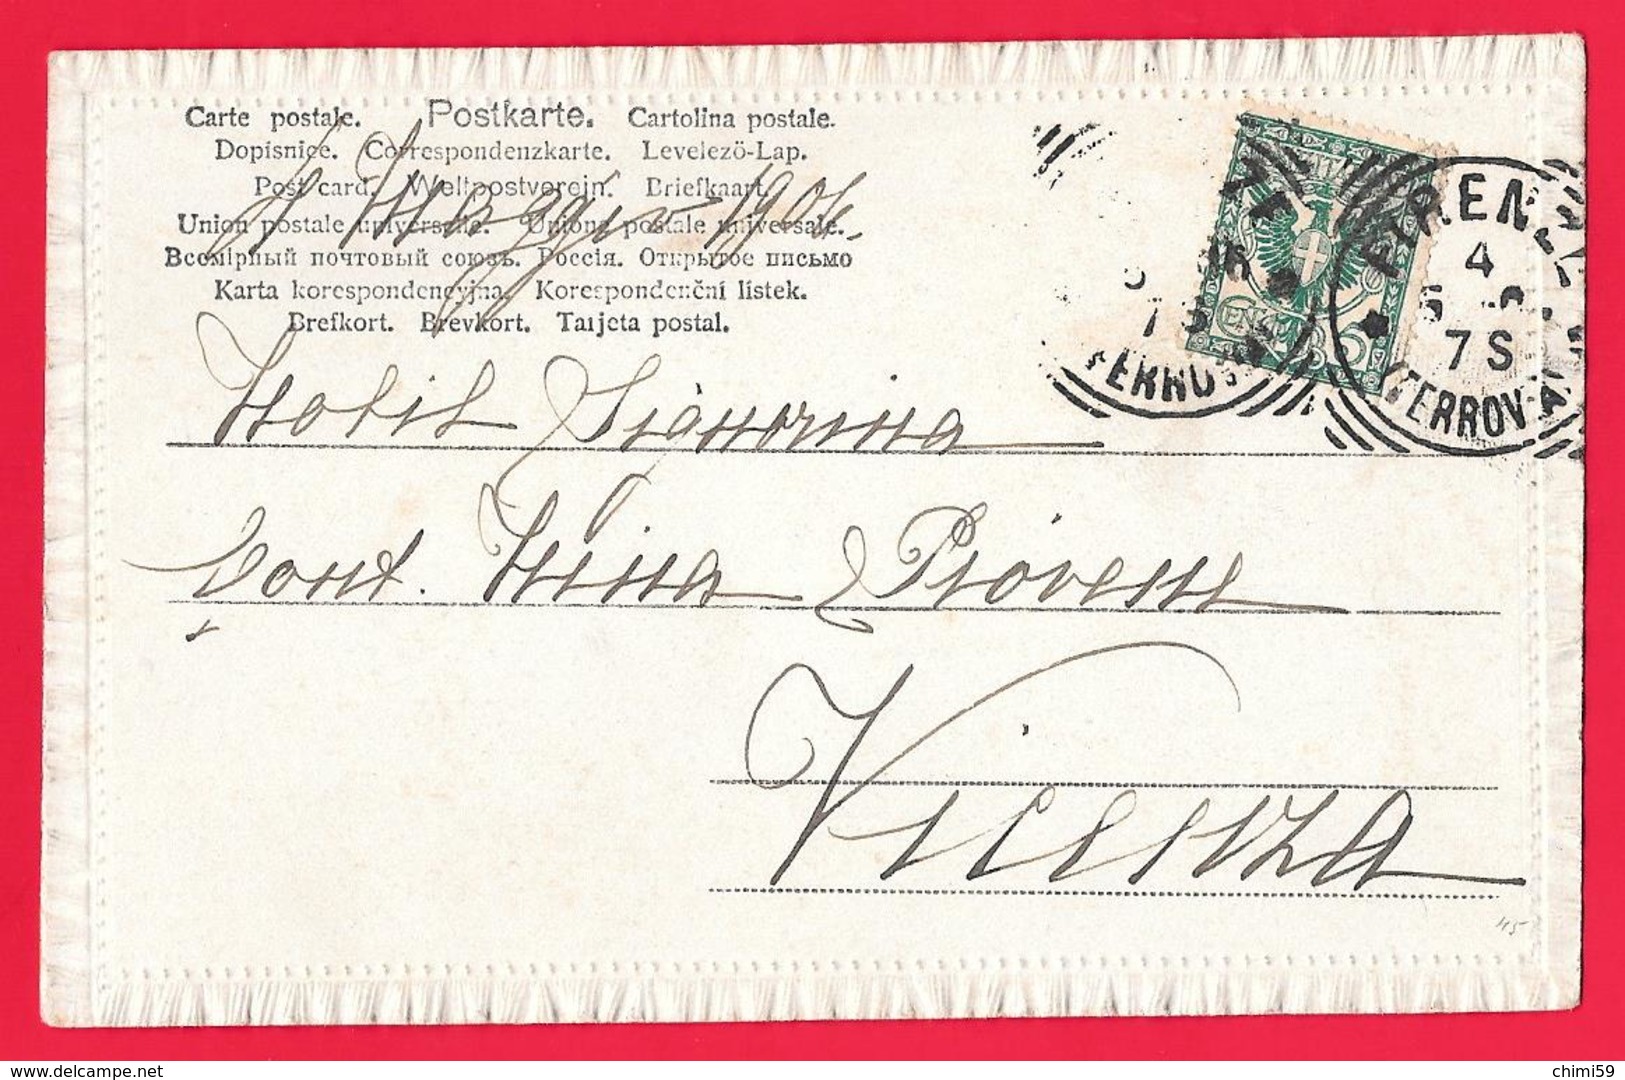 Carte postale. Postkarte. Cartolina postale.
Dopisnice. Correspondenzkarte. Levelező-Lap.
Post card. Weltpostverein. Briefkaart.
Union postale universelle. Unione postale universale.
Всемірный почтовый союзъ. Россія. Открытое письмо
Karta korespondencyjna. Korespondenční lístek.
Brefkort. Brevkort. Tarjeta postal.
4 Maggio 1906.
FIRENZE
4
5
7 S
FERROVIA
7 S
FERROV
CENT
5
Nobil Signorina
Cont. Nina Piovene
Vicenza
45
delcampe.net
chimi59